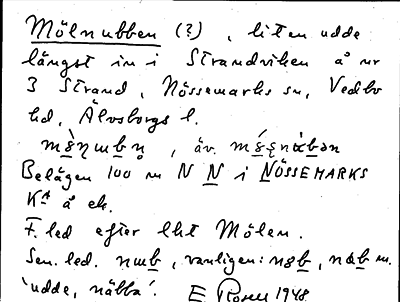 Mölnubben (?), liten udde
längst in i Strandviken å nr
3 Strand, Nössemarks sn, Vedbo
hd, Älvsborgs l.
, äv.
Belägen 100 m N N i NÖSSEMARKS
Kª å ek.
F. led efter lht Mölen.
Sen. led. , vanligen: , m.
'udde, näbba'. E Rosen 1948.